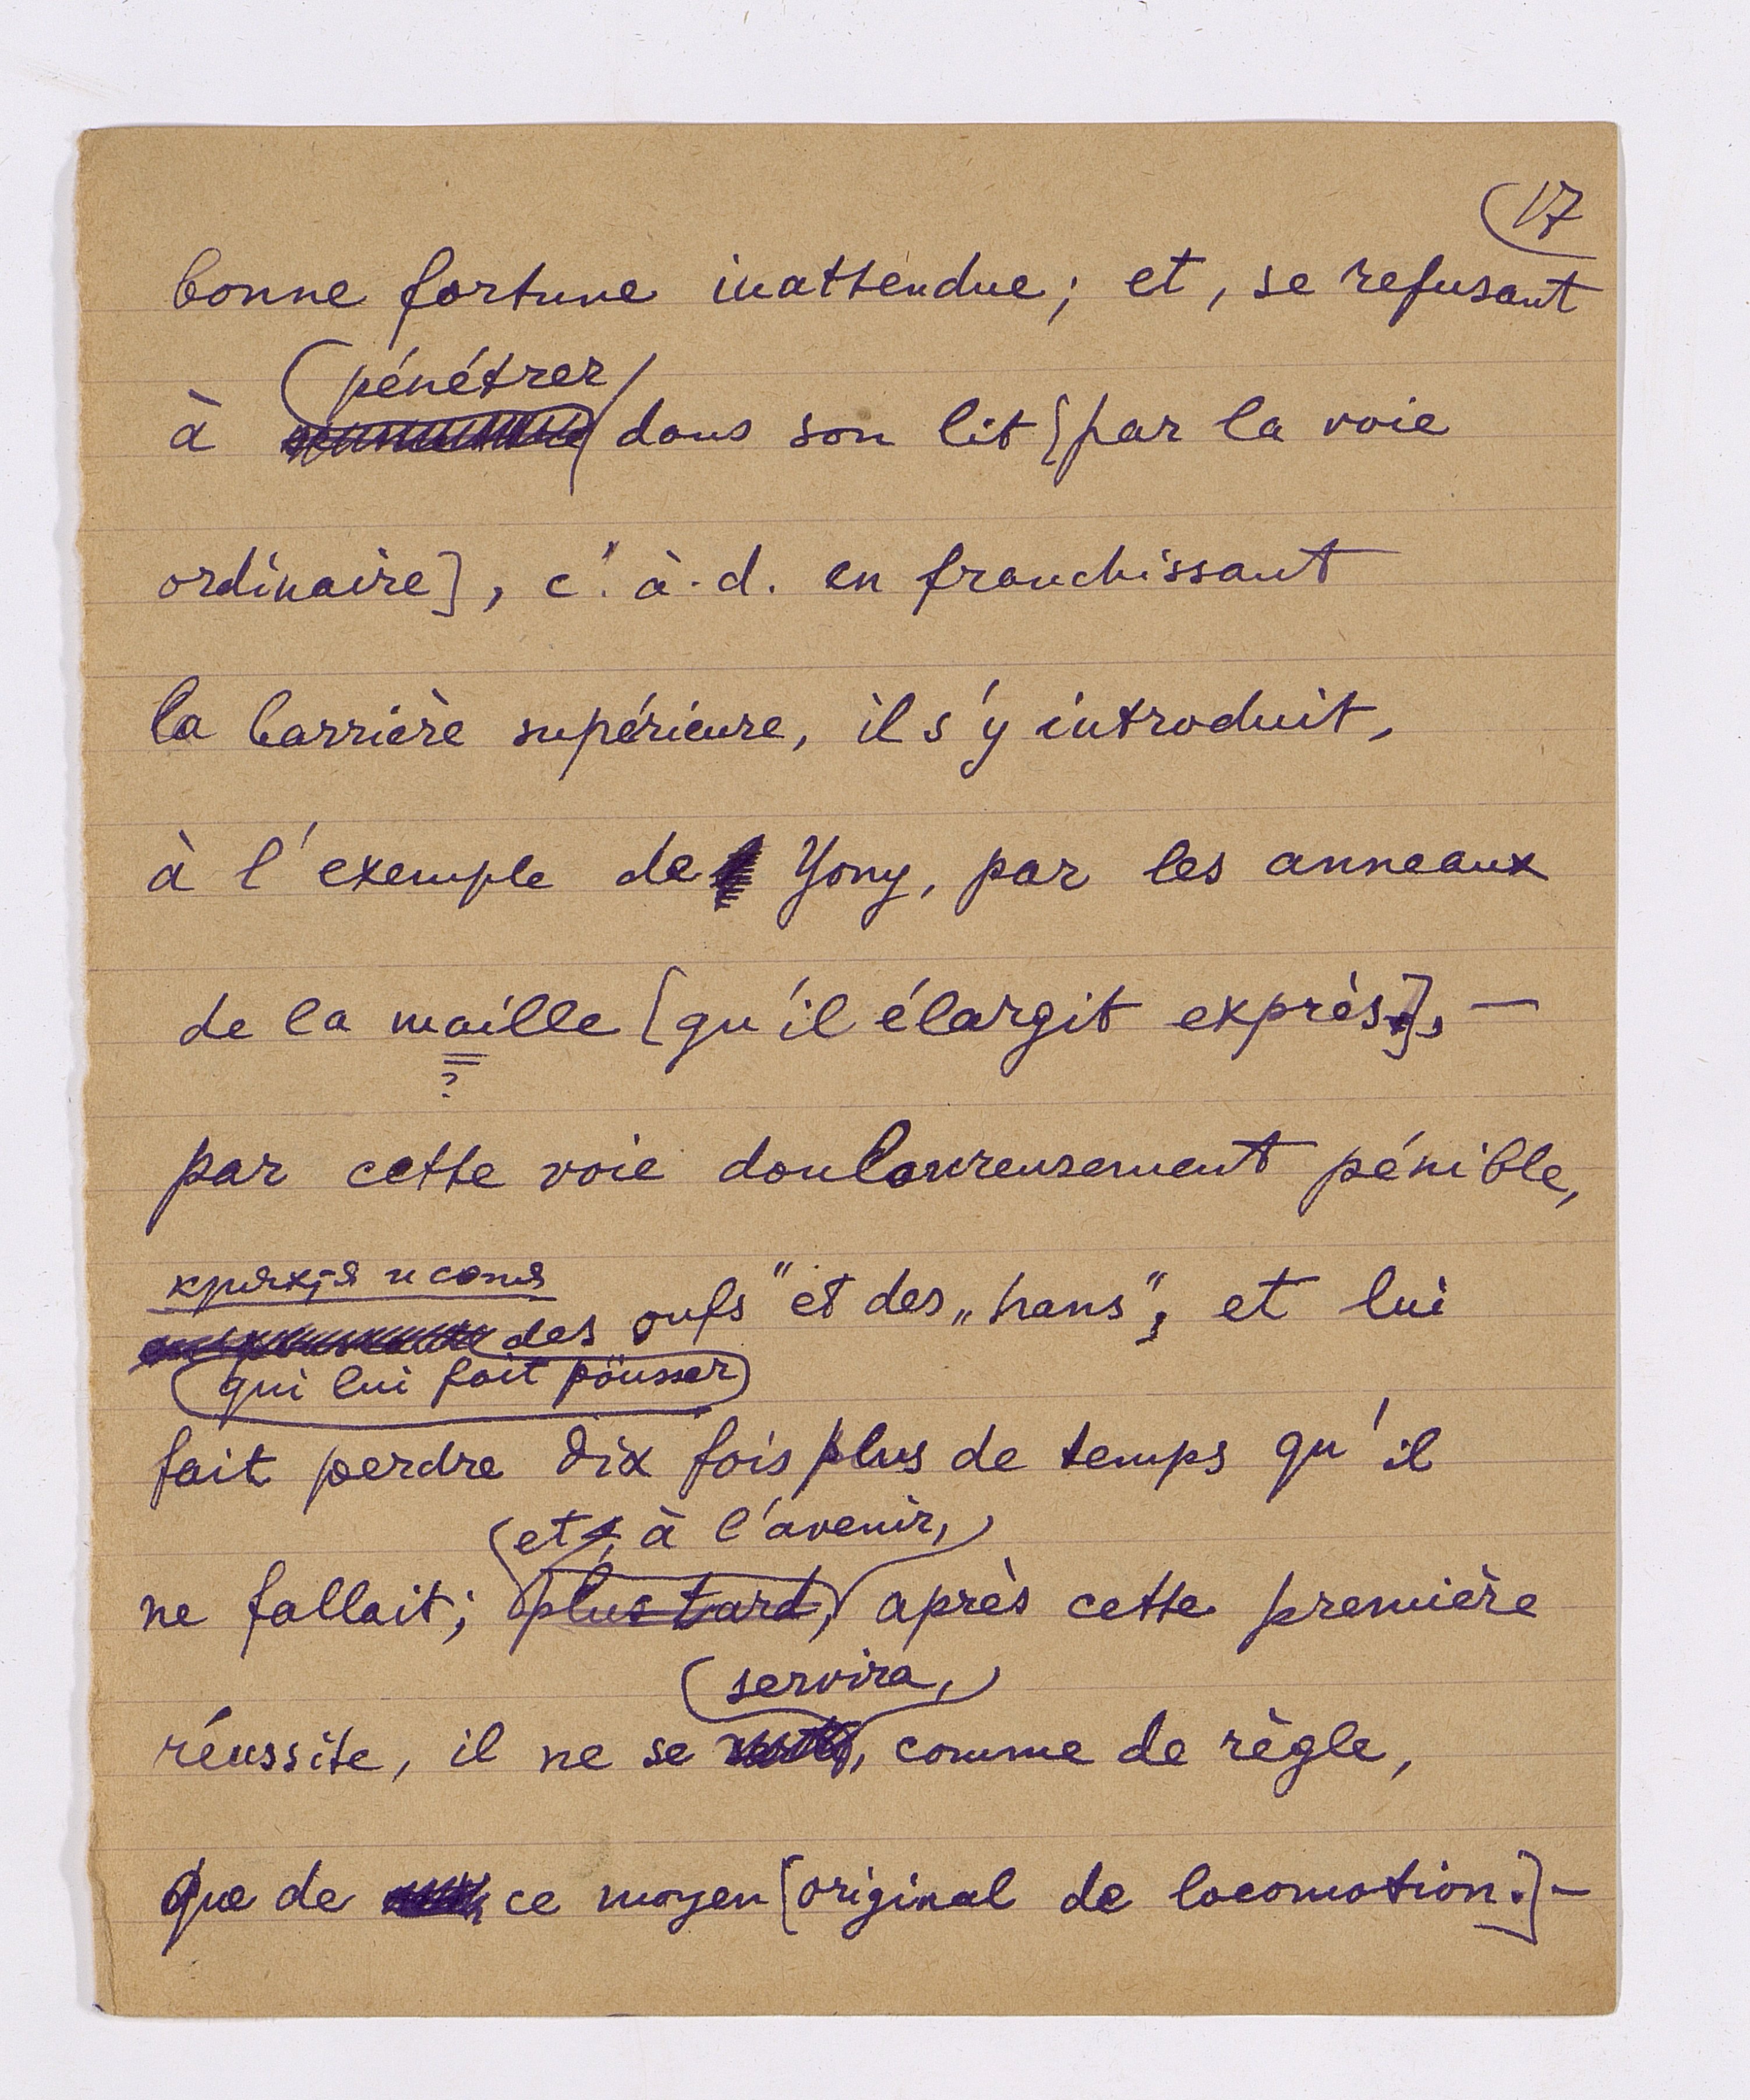 17
bonne fortune inattendue; et, se refusant
pénétrer
à dans son lit [par la voie
ordinaire], c'. à. d. en franchissant
la barrière supérieure, il s'y introduit,
à l'exemple de Yony, par les anneaux
de la maille [qu'il élargit exprès], —
?
par cette voie douloureusement pénible,
кряхтя и сопя
des oufs" et des „hans"; et lui
qui lui fait pousser
fait perdre dix fois plus de temps qu'il
et, à l'avenir,
ne fallait; plus tard, après cette première
servira,
réussite, il ne se , comme de règle,
que de ce moyen [original de locomotion.] —